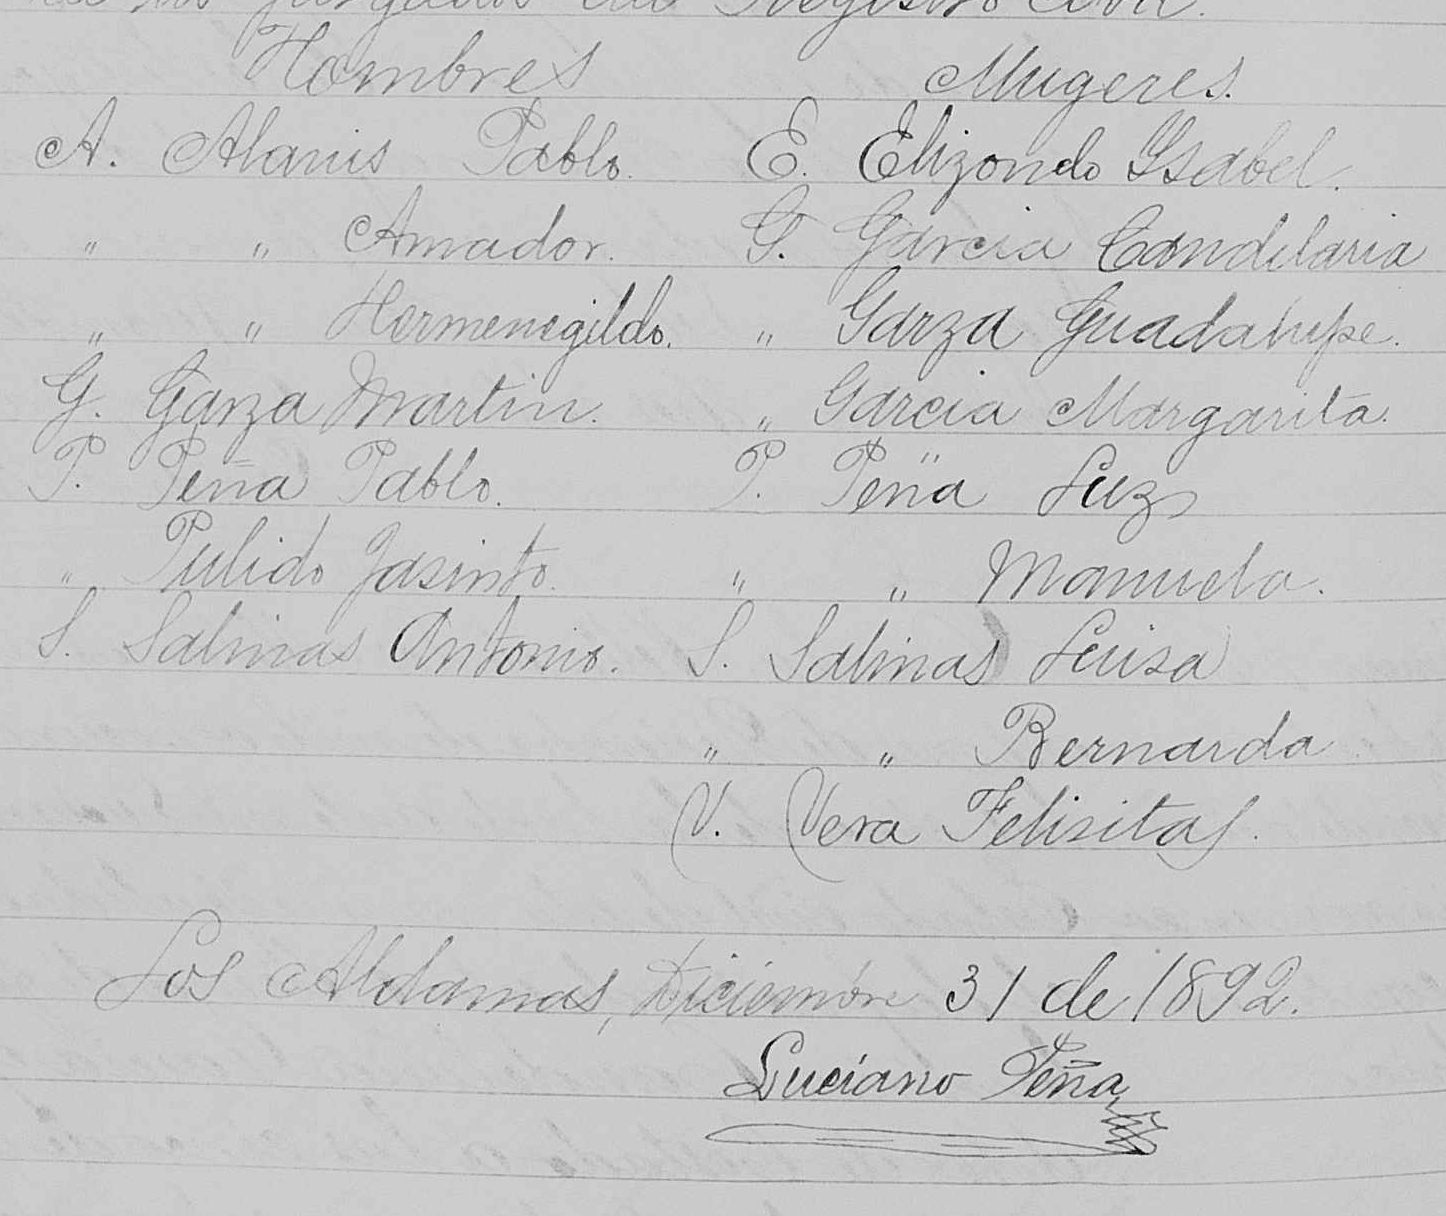 Juzgados del Registro Civil.
Hombres Mugeres.
A. Alanis Pablo. E. Elizondo Ysabel.
" " Amador. G. Garcia Candelaria
" " Hermenegildo. " Garza Guadalupe.
G. Garza Martin. " Garcia Margarita.
P. Peña Pablo. P. Peña Luz
" Pulido Jasinto. " " Manuela.
S. Salinas Antonio. S. Salinas Luisa
" " Bernarda
V. Vera Felisitas.
Los Aldamas, Diciembre 31 de 1892.
Luciano Peña